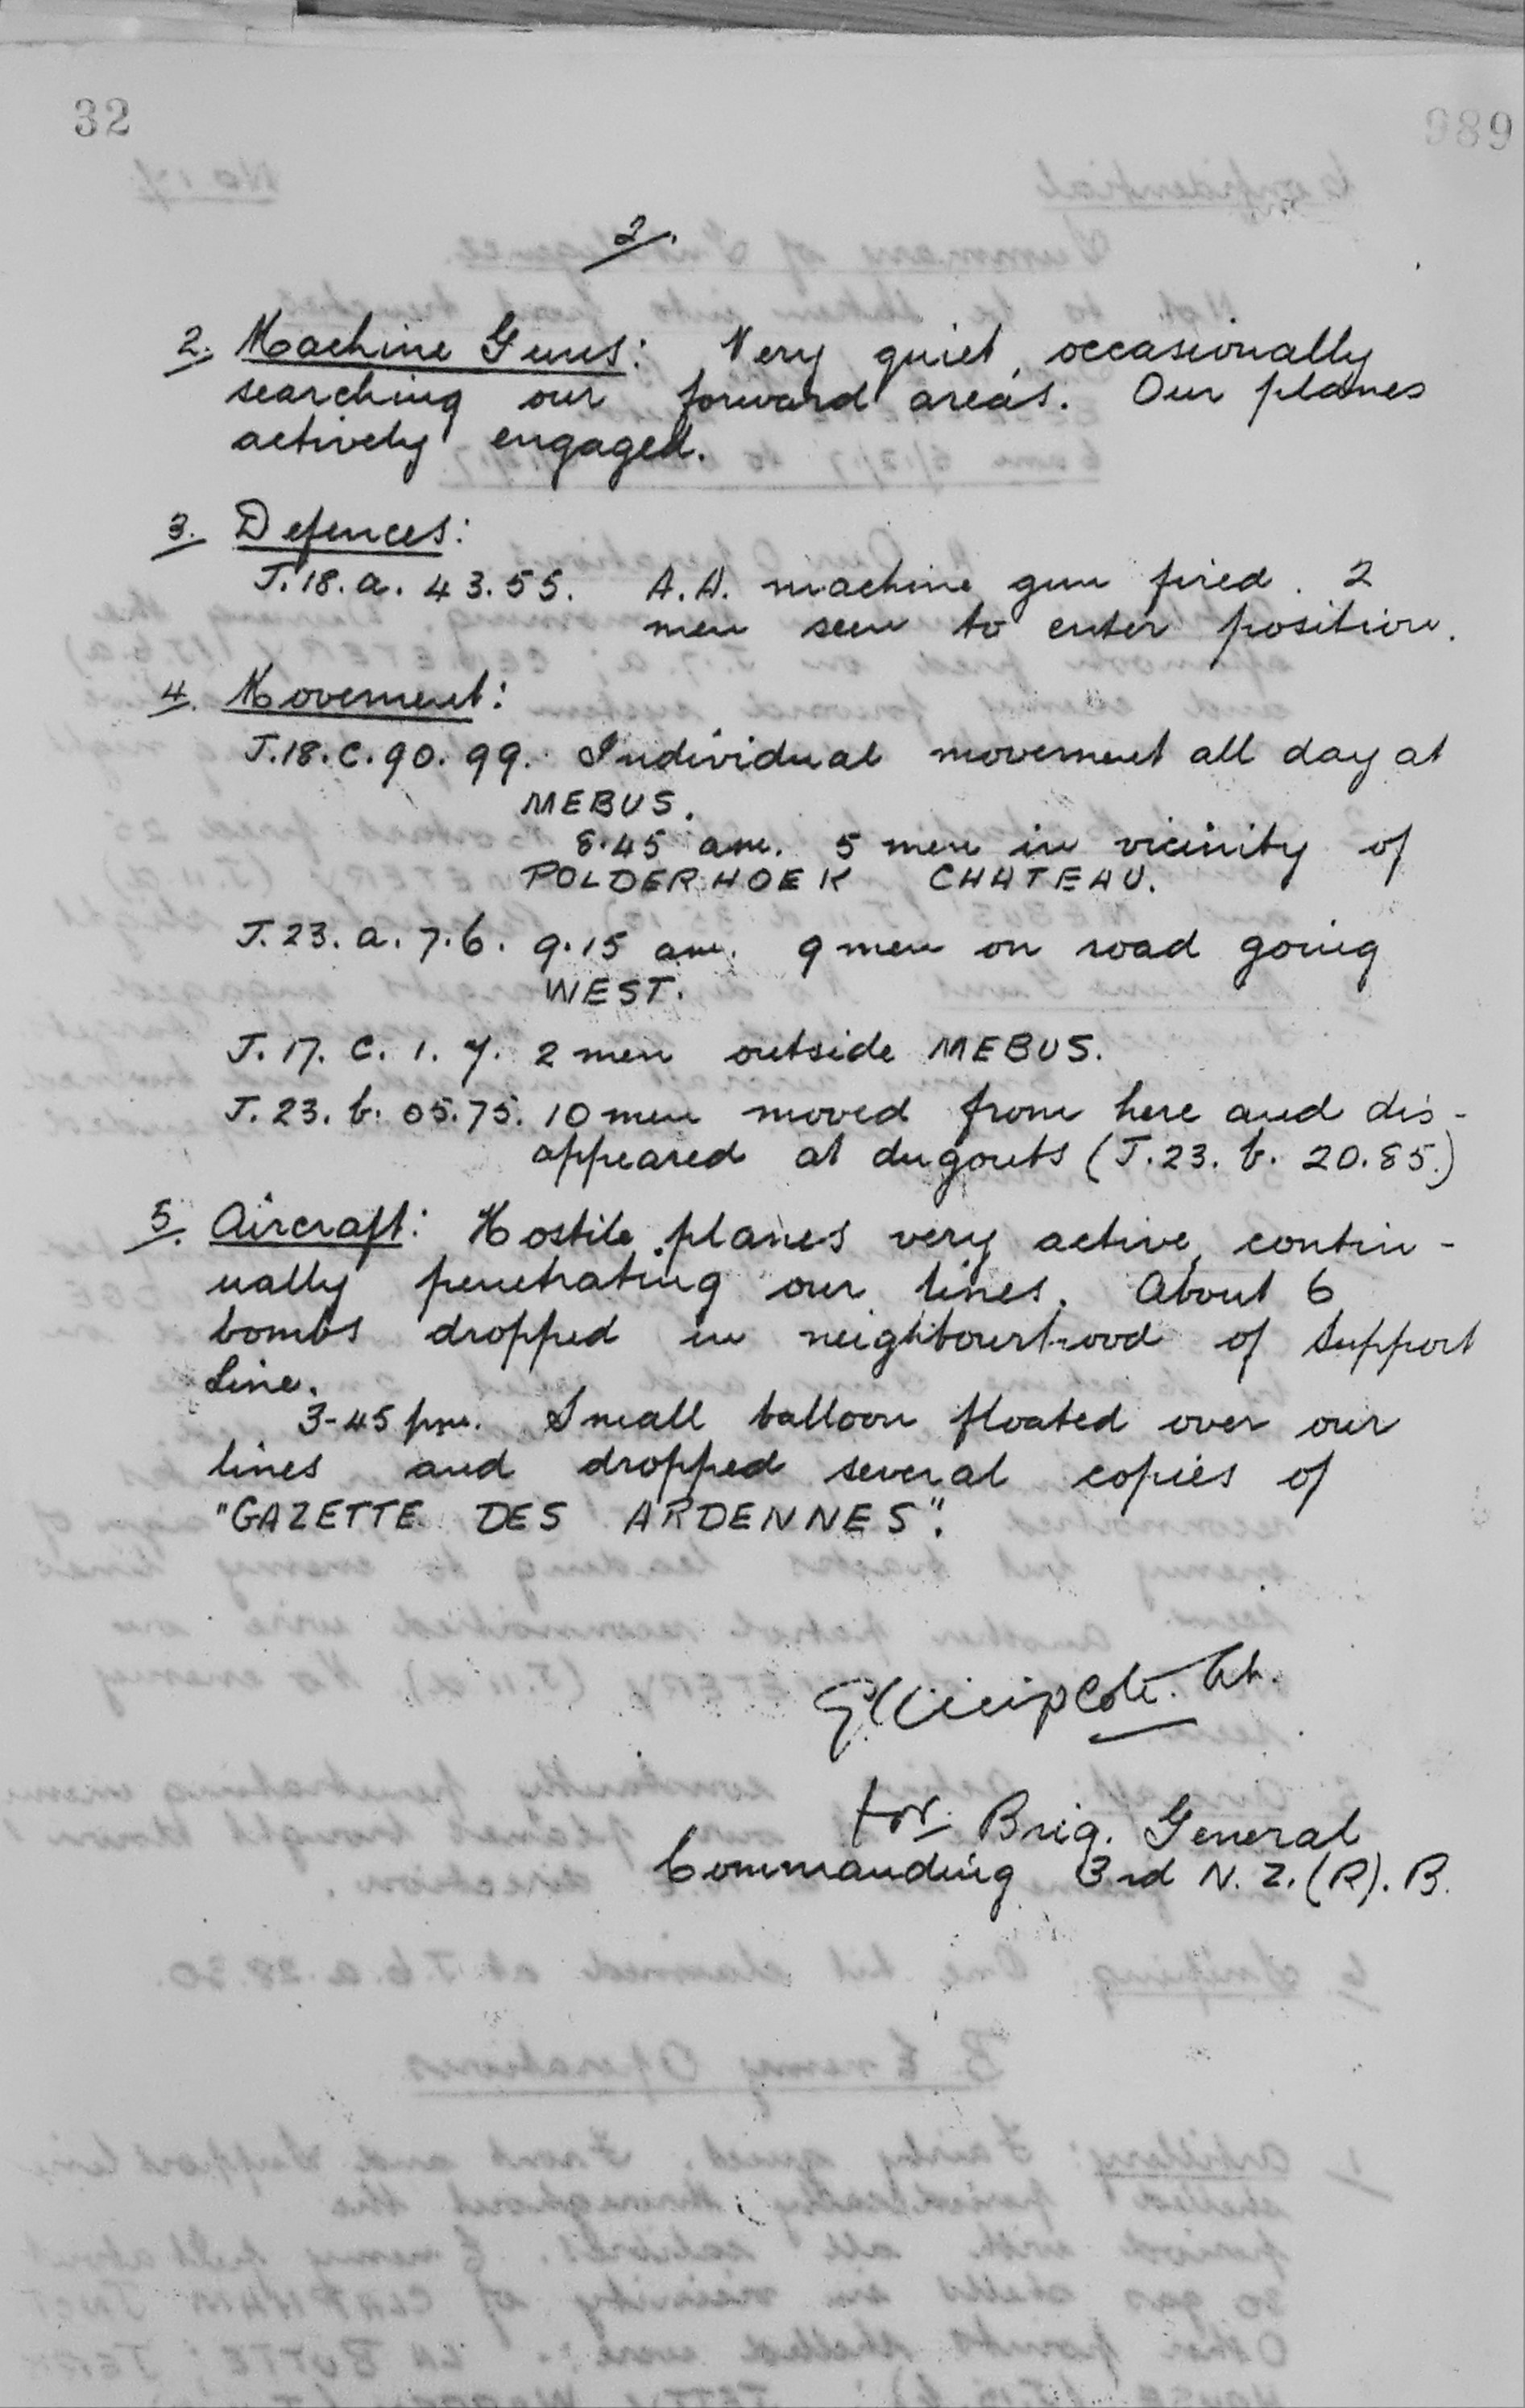 32
989
2.
2. Machine Guns: Very quiet, occasionally
searching our forward areas. Our planes
actively engaged.
3. Defences:
J.18.a.43.55. A.A. machine gun fired. 2
men seen to enter position.
4. Movement:
J.18.c.90.99. Individual movement all day at
MEBUS.
8.45 am. 5 men in vicinity of
POLDERHOEK CHATEAU.
J.23.a.7.6. 9.15 am. 9 men on road going
WEST.
J.17.c.1.7. 2 men outside MEBUS.
J.23.b.05.75. 10 men moved from here and dis-
appeared at dugouts (J.23.b.20.85.)
5. Aircraft: Hostile planes very active, contin-
ually penetrating our lines. About 6
bombs dropped in neighbourhood of Support
Line.
3-45 pm. Small balloon floated over our
lines and dropped several copies of
"GAZETTE DES ARDENNES".
Lt.
for Brig. General
Commanding 3rd N.Z.(R).B.